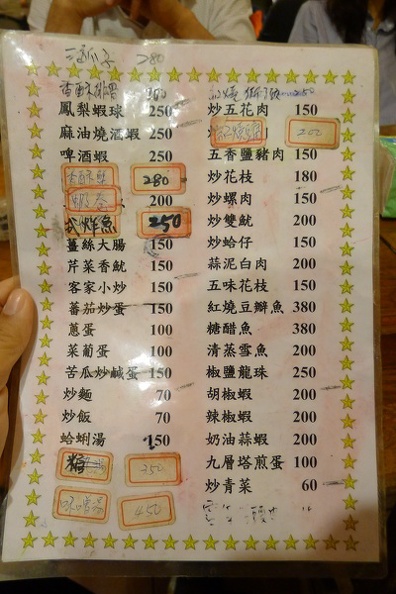 280
鳳梨蝦球 250
麻油燒酒蝦 250
啤酒蝦 250
280
200
炸魚 250
薑絲大腸 150
芹菜香魷 150
客家小炒 150
蕃茄炒蛋 150
蔥蛋 100
菜葡蛋 100
苦瓜炒鹹蛋 150
炒麵 70
炒飯 70
蛤蜊湯 150
350
味噌湯 450
炒五花肉 150
200
五香鹽豬肉 150
炒花枝 180
炒螺肉 150
炒雙魷 200
炒蛤仔 150
蒜泥白肉 200
五味花枝 150
紅燒豆瓣魚 380
糖醋魚 380
清蒸雪魚 200
椒鹽龍珠 250
胡椒蝦 200
辣椒蝦 200
奶油蒜蝦 200
九層塔煎蛋 100
炒青菜 60